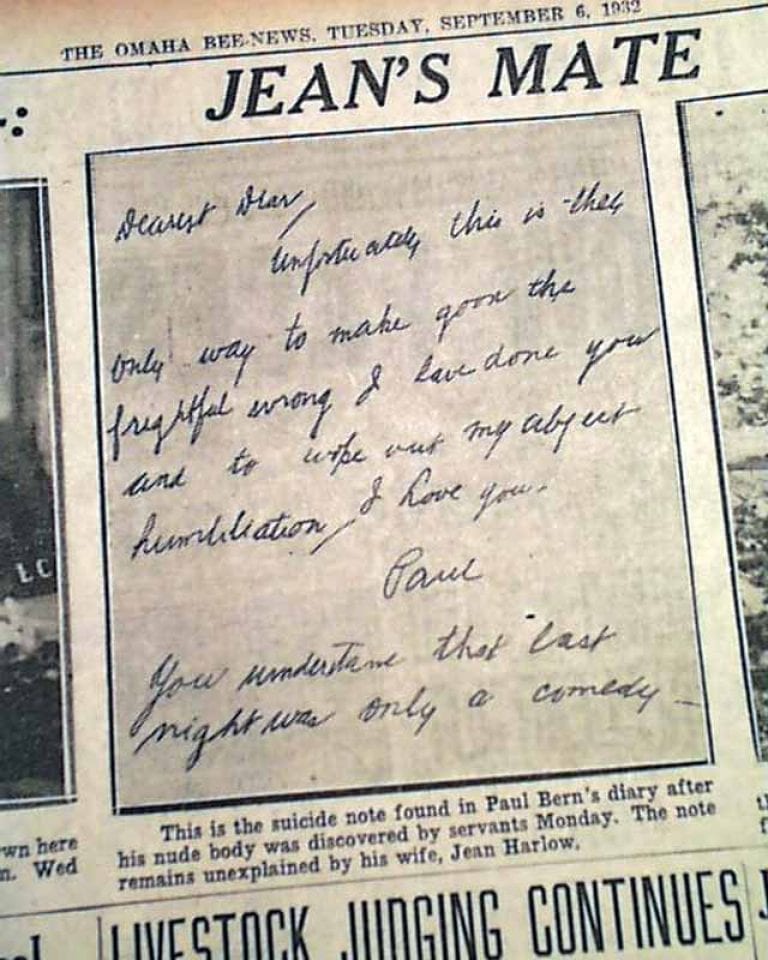 THE OMAHA BEE-NEWS, TUESDAY, SEPTEMBER 6, 1932
JEAN'S MATE
Dearest Dear,
Unfortuately this is the
only way to make good the
frightful wrong I have done you
and to wipe out my abject
humiliation, I Love you.
Paul
You understand that last
night was only a comedy -
LC
This is the suicide note found in Paul Bern's diary after
his nude body was discovered by servants Monday. The note
remains unexplained by his wife, Jean Harlow.
wn here
n. Wed
LIVESTOCK JUDGING CONTINUES